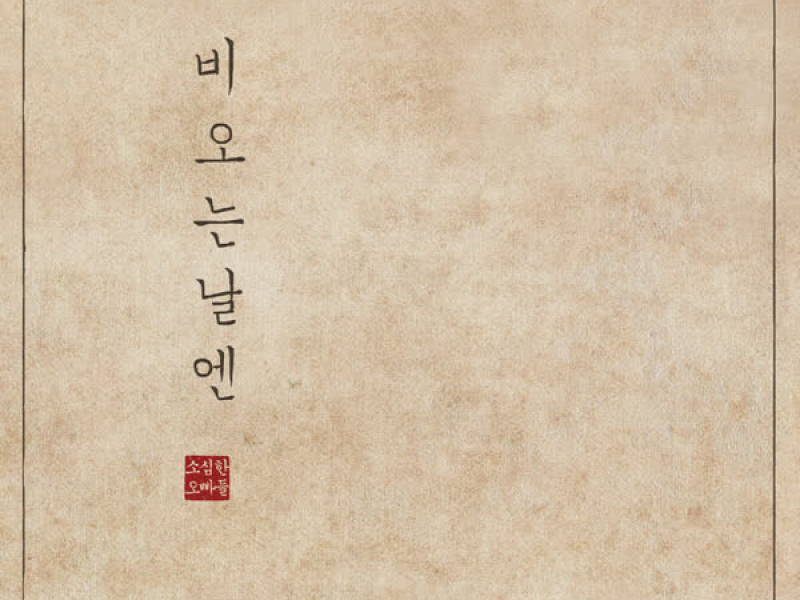 비오는날엔
소심한
오빠들